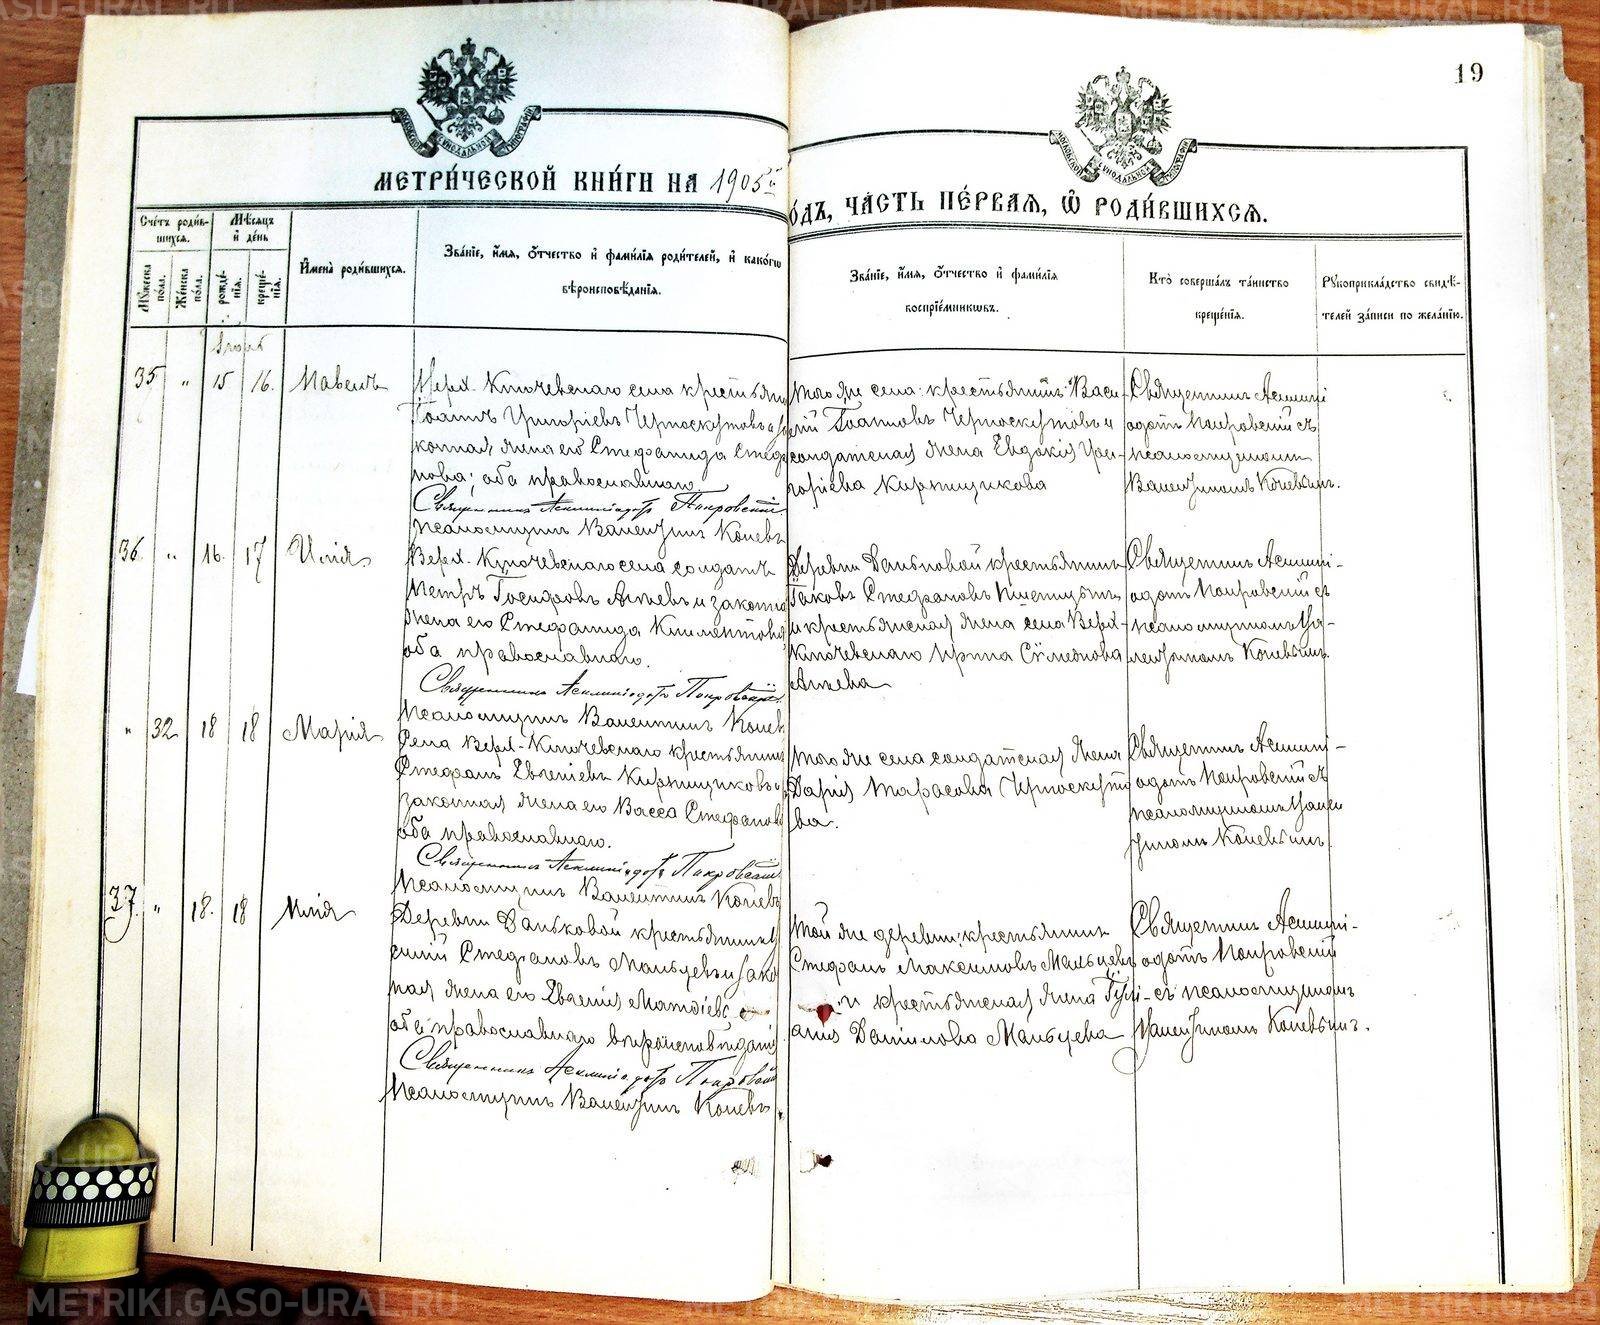 METRIKI.GASO-URAL.RU
19
МЕТРИ́ЧЕСКОЙ КНИ́ГИ НА 1905 й
ОДЪ, ЧА́СТЬ ПЕ́РВАЯ, Ѡ РОДИ́ВШИХСЯ.
Сче́тъ роди́в-
шихся.
Мѣ́сяцъ
и҆ де́нь
Мꙋ́жеска
по́ла.
Же́нска
по́ла.
рожде́-
нїя.
креще́-
нїя.
И҆мена̀ роди́вшихся.
Зва́нїе, и҆́мя, ѻ҆́тчество и҆ фами́лїя роди́телей, и҆ како́гѡ
вѣроисповѣ́данїя.
Зва́нїе, и҆́мя, ѻ҆́тчество и҆ фами́лїя
воспрїе́мникѡвъ.
Кто̀ соверша́лъ та́инство
креще́нїя.
Рꙋкоприкла́дство свидѣ́-
телей за́писи по жела́нїю.
35 " 15 16. Павелъ
Верх-Ключевскаго села крестьянинъ
Іоаннъ Григоріевъ Черноскутовъ и за
конная жена его Стефанида Стефа
нова; оба православнаго.
Священникъ Асклипіодотъ Покровскій
Псаломщикъ Валентинъ Коневъ
Того же села: крестьянинъ Васи-
лій Іоанновъ Черноскутовъ и
солдатская жена Евдокія Гри-
горіева Кирпищикова
Священникъ Асклипі
одотъ Покровскій съ
псаломщикомъ
Валентиномъ Коневымъ.
36. " 16. 17 Илія
Верх-Ключевскаго села солдатъ
Петръ Іосифовъ и законная
жена его Стефанида Климентова
оба православнаго.
Священникъ Асклипіодотъ Покровскій
Псаломщикъ Валентинъ Конев
Деревни крестьянинъ
Іаковъ Стефановъ
и крестьянская жена села Верх-
Ключевскаго Ирина Сѵмеонова
Священникъ Асклипі-
одотъ Покровскій съ
псаломщикомъ Ва-
лентиномъ Коневымъ.
" 32 18 18 Марія
Села Верх-Ключевскаго крестьянинъ
Стефанъ Евгеніевъ Кирпищиковъ и
законная жена его Васса Стефанова
оба православнаго.
Священникъ Асклипіодотъ Покровскій
Псаломщикъ Валентинъ Коневъ
Того же села солдатская жена
Дарія Тарасова Черноскуто
ва.
Священникъ Асклипі-
одотъ Покровскій съ
псаломщикомъ Вален
тиномъ Коневымъ.
37. " 18. 18 Илія
Деревни крестьянинъ
Стефановъ Мальцевъ и зако
ная жена его Евгенія Матѳіева
оба православнаго вѣроисповѣданія
Священникъ Асклипіодотъ Покровскій
Псаломщикъ Валентинъ Коневъ.
Той же деревни: крестьянинъ
Стефанъ Максимовъ Мальцевъ
и крестьянская жена Іулі-
анія Данилова Мальцева
Священникъ Асклипі-
одотъ Покровскій
съ псаломщикомъ
Валентиномъ Коневымъ.
METRIKI.GASO-URAL.RU